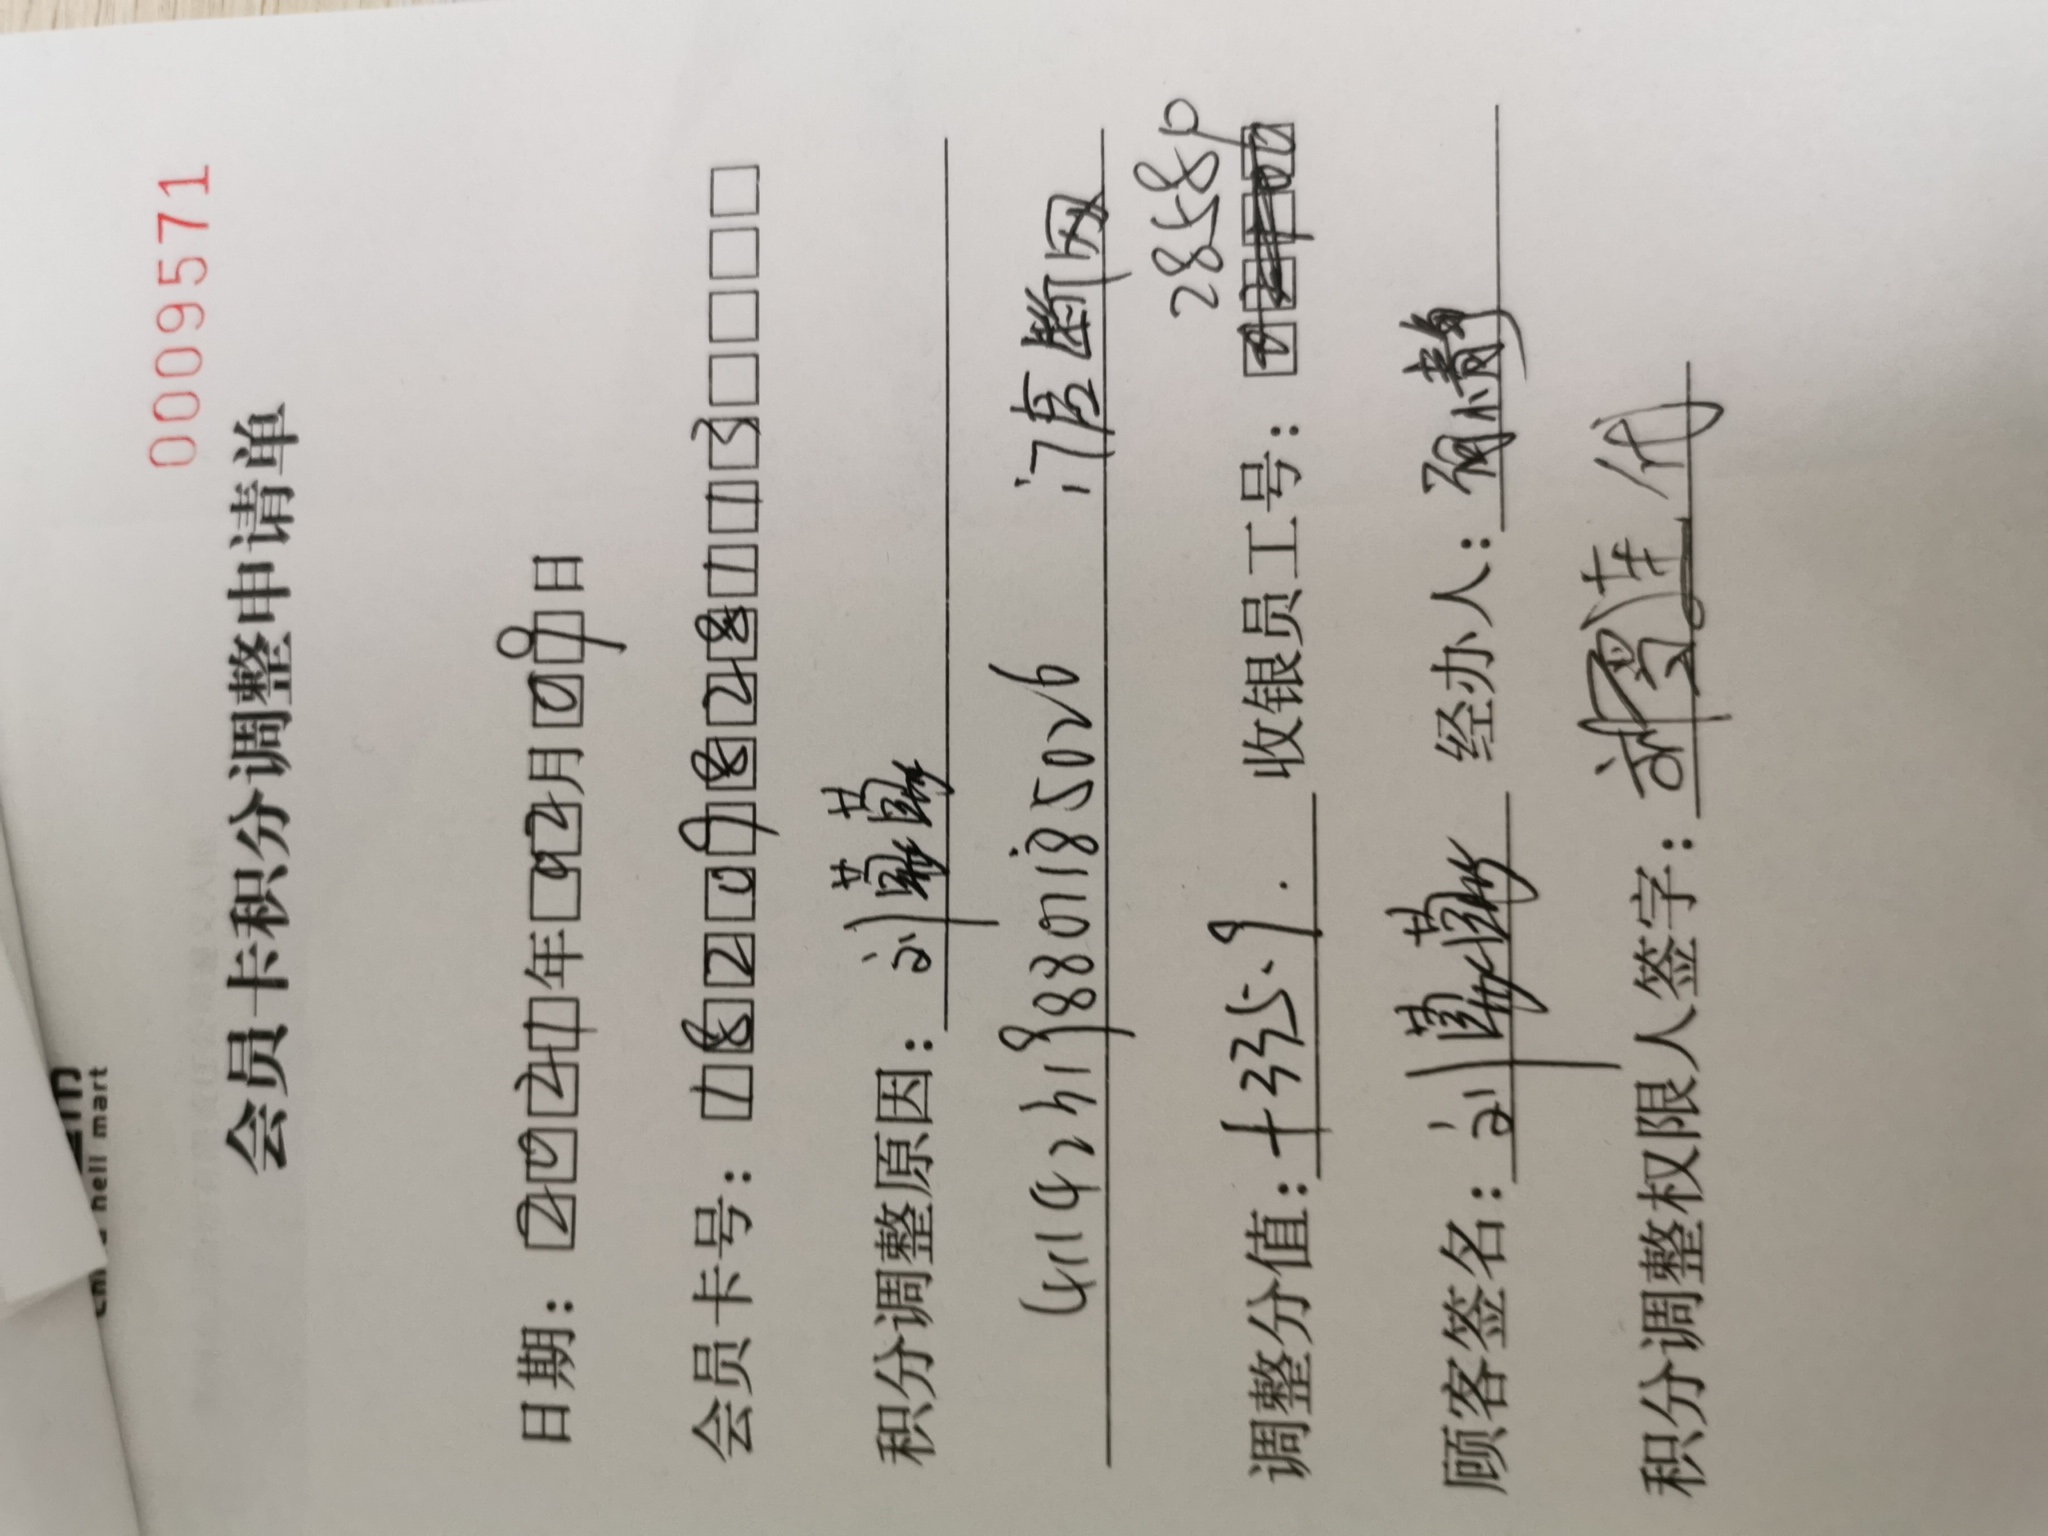 hell mart
0009571
会员卡积分调整申请单
日期：2021年02月09日
会员卡号：18209828113
积分调整原因：刘
411423198801185026 门店断网
28580
调整分值：+335.9. 收银员工号：
顾客签名：刘 经办人：
积分调整权限人签字：代